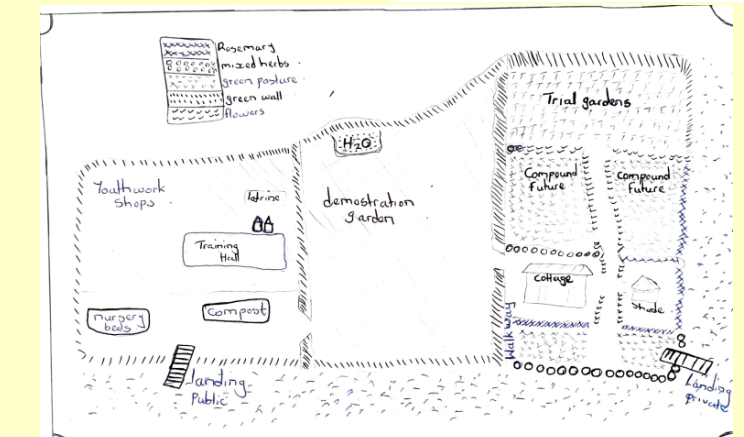 Rosemary
mixed herbs
green pasture
green wall
flowers
Trial gardens
H2O
Youthwork
Shops.
latrine
demostration
garden
Compound
Future
Compound
Future
Training
Hall
Cottage
Shade
nursery
beds
Compost
Walkway
landing
Public
Landing
private